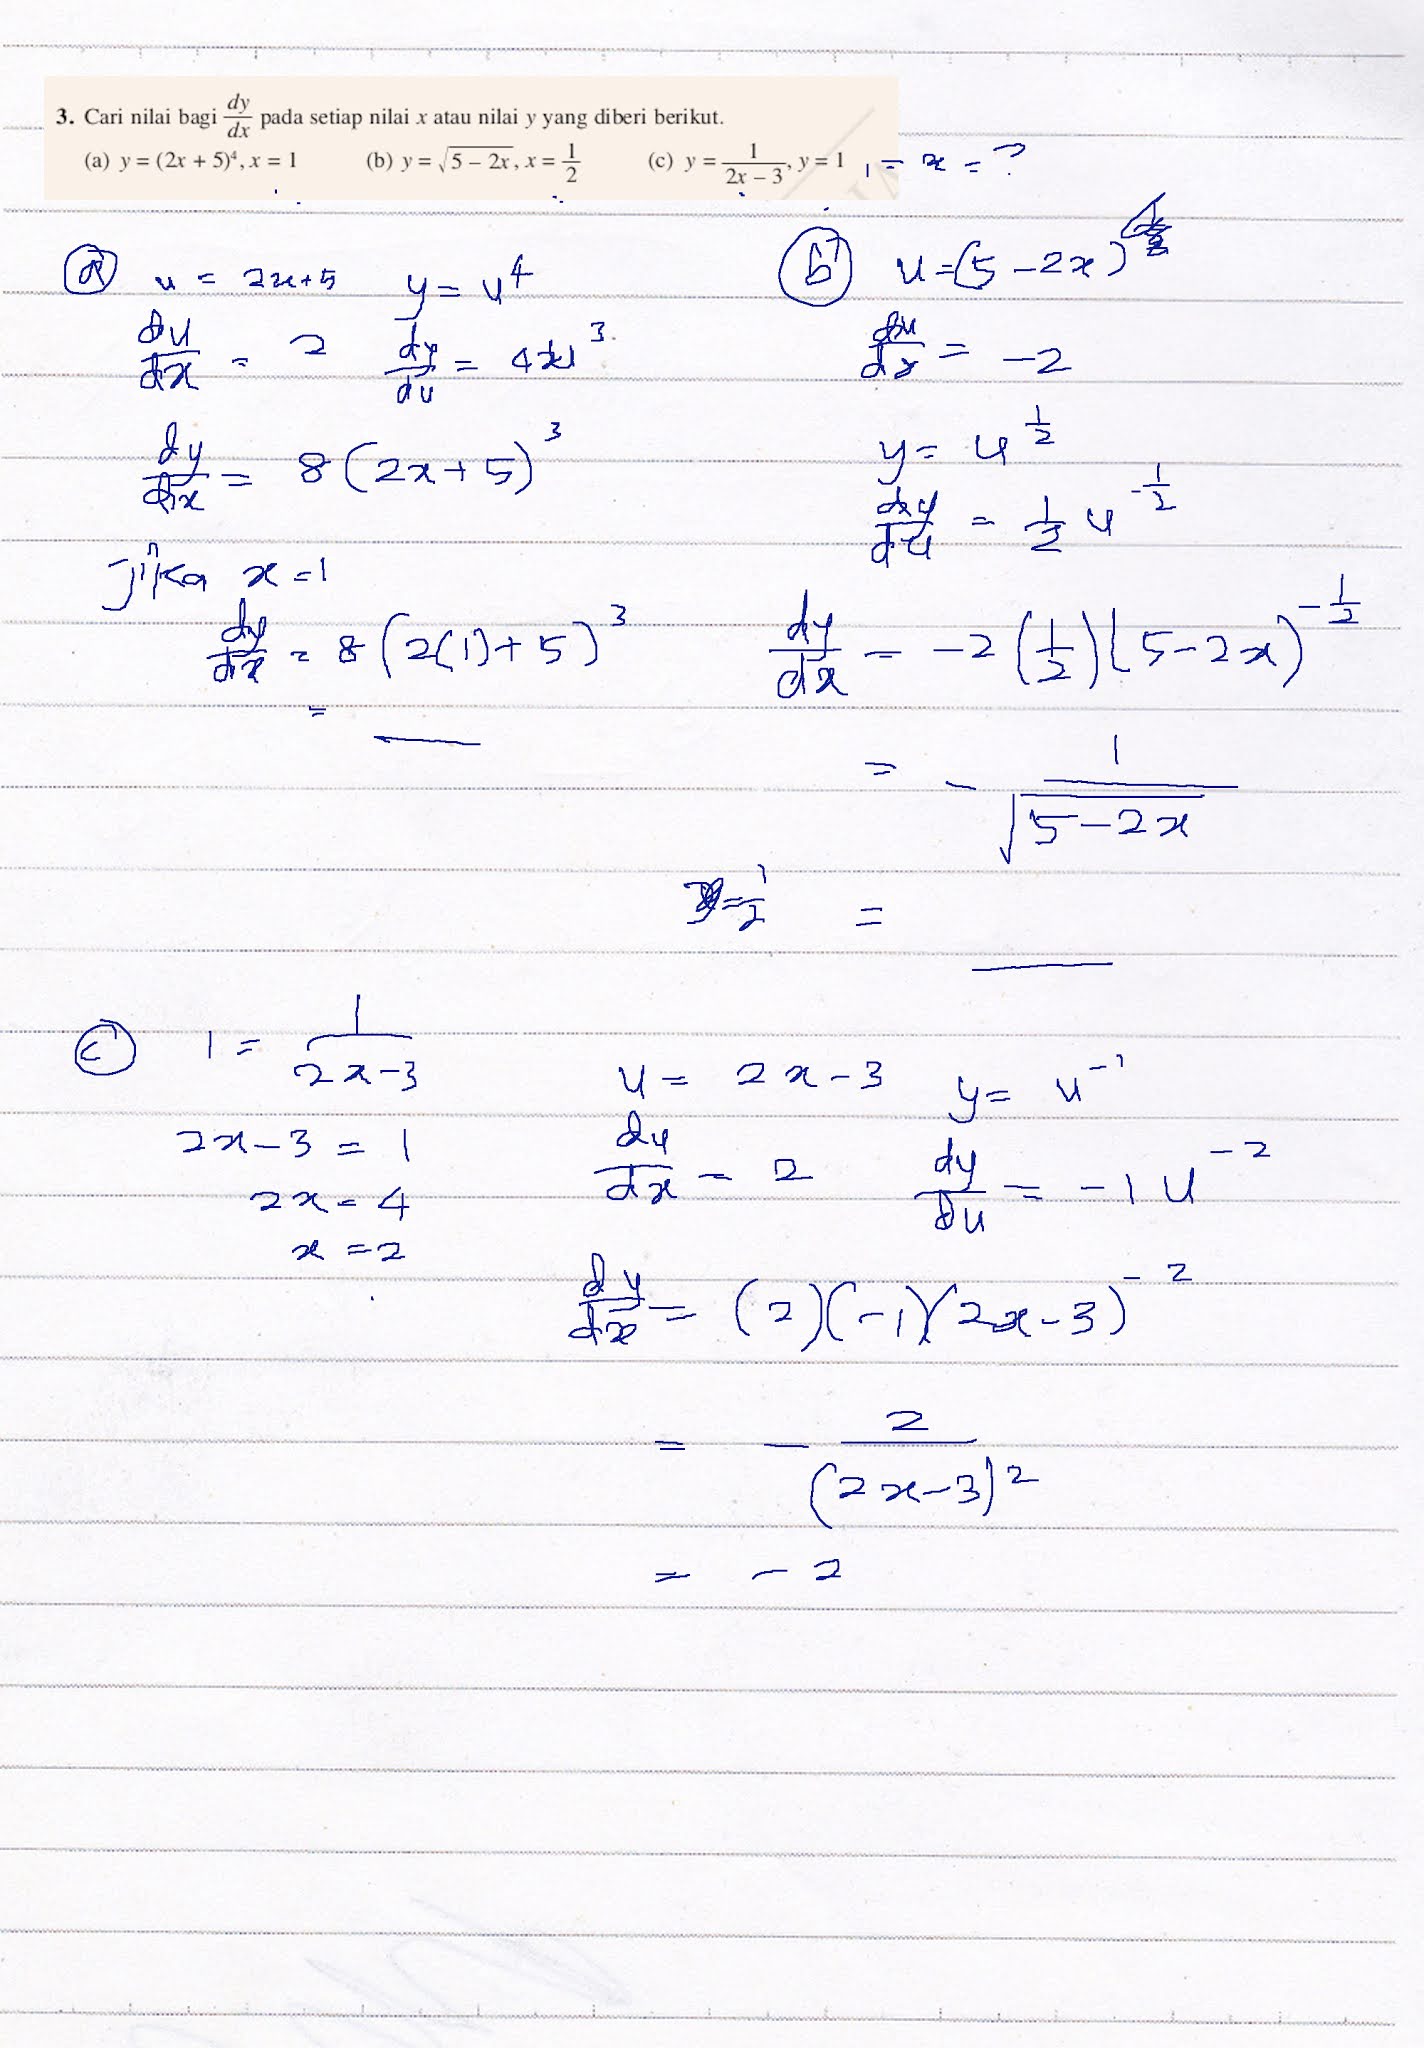 3. Cari nilai bagi dy/dx pada setiap nilai x atau nilai y yang diberi berikut.
(a) y = (2x + 5)⁴, x = 1 (b) y = √(5 – 2x), x = 1/2 (c) y = 1/(2x – 3), y = 1 , = x = ?
(a) u = 2x+5 y = u⁴
du/dx = 2 dy/du = 4u³
dy/dx = 8(2x+5)³
jika x = 1
dy/dx = 8(2(1)+5)³
=
(b) u = (5 – 2x)
du/dx = –2
y = u^(1/2)
dy/du = 1/2 u^(-1/2)
dy/dx = –2(1/2)(5–2x)^(-1/2)
= – 1/√(5–2x)
= 1/2 =
(c) 1 = 1/(2x–3)
2x–3 = 1
2x = 4
x = 2
u = 2x–3 y = u⁻¹
du/dx = 2 dy/du = –1u⁻²
dy/dx = (2)(–1)(2x–3)⁻²
= – 2/(2x–3)²
= –2